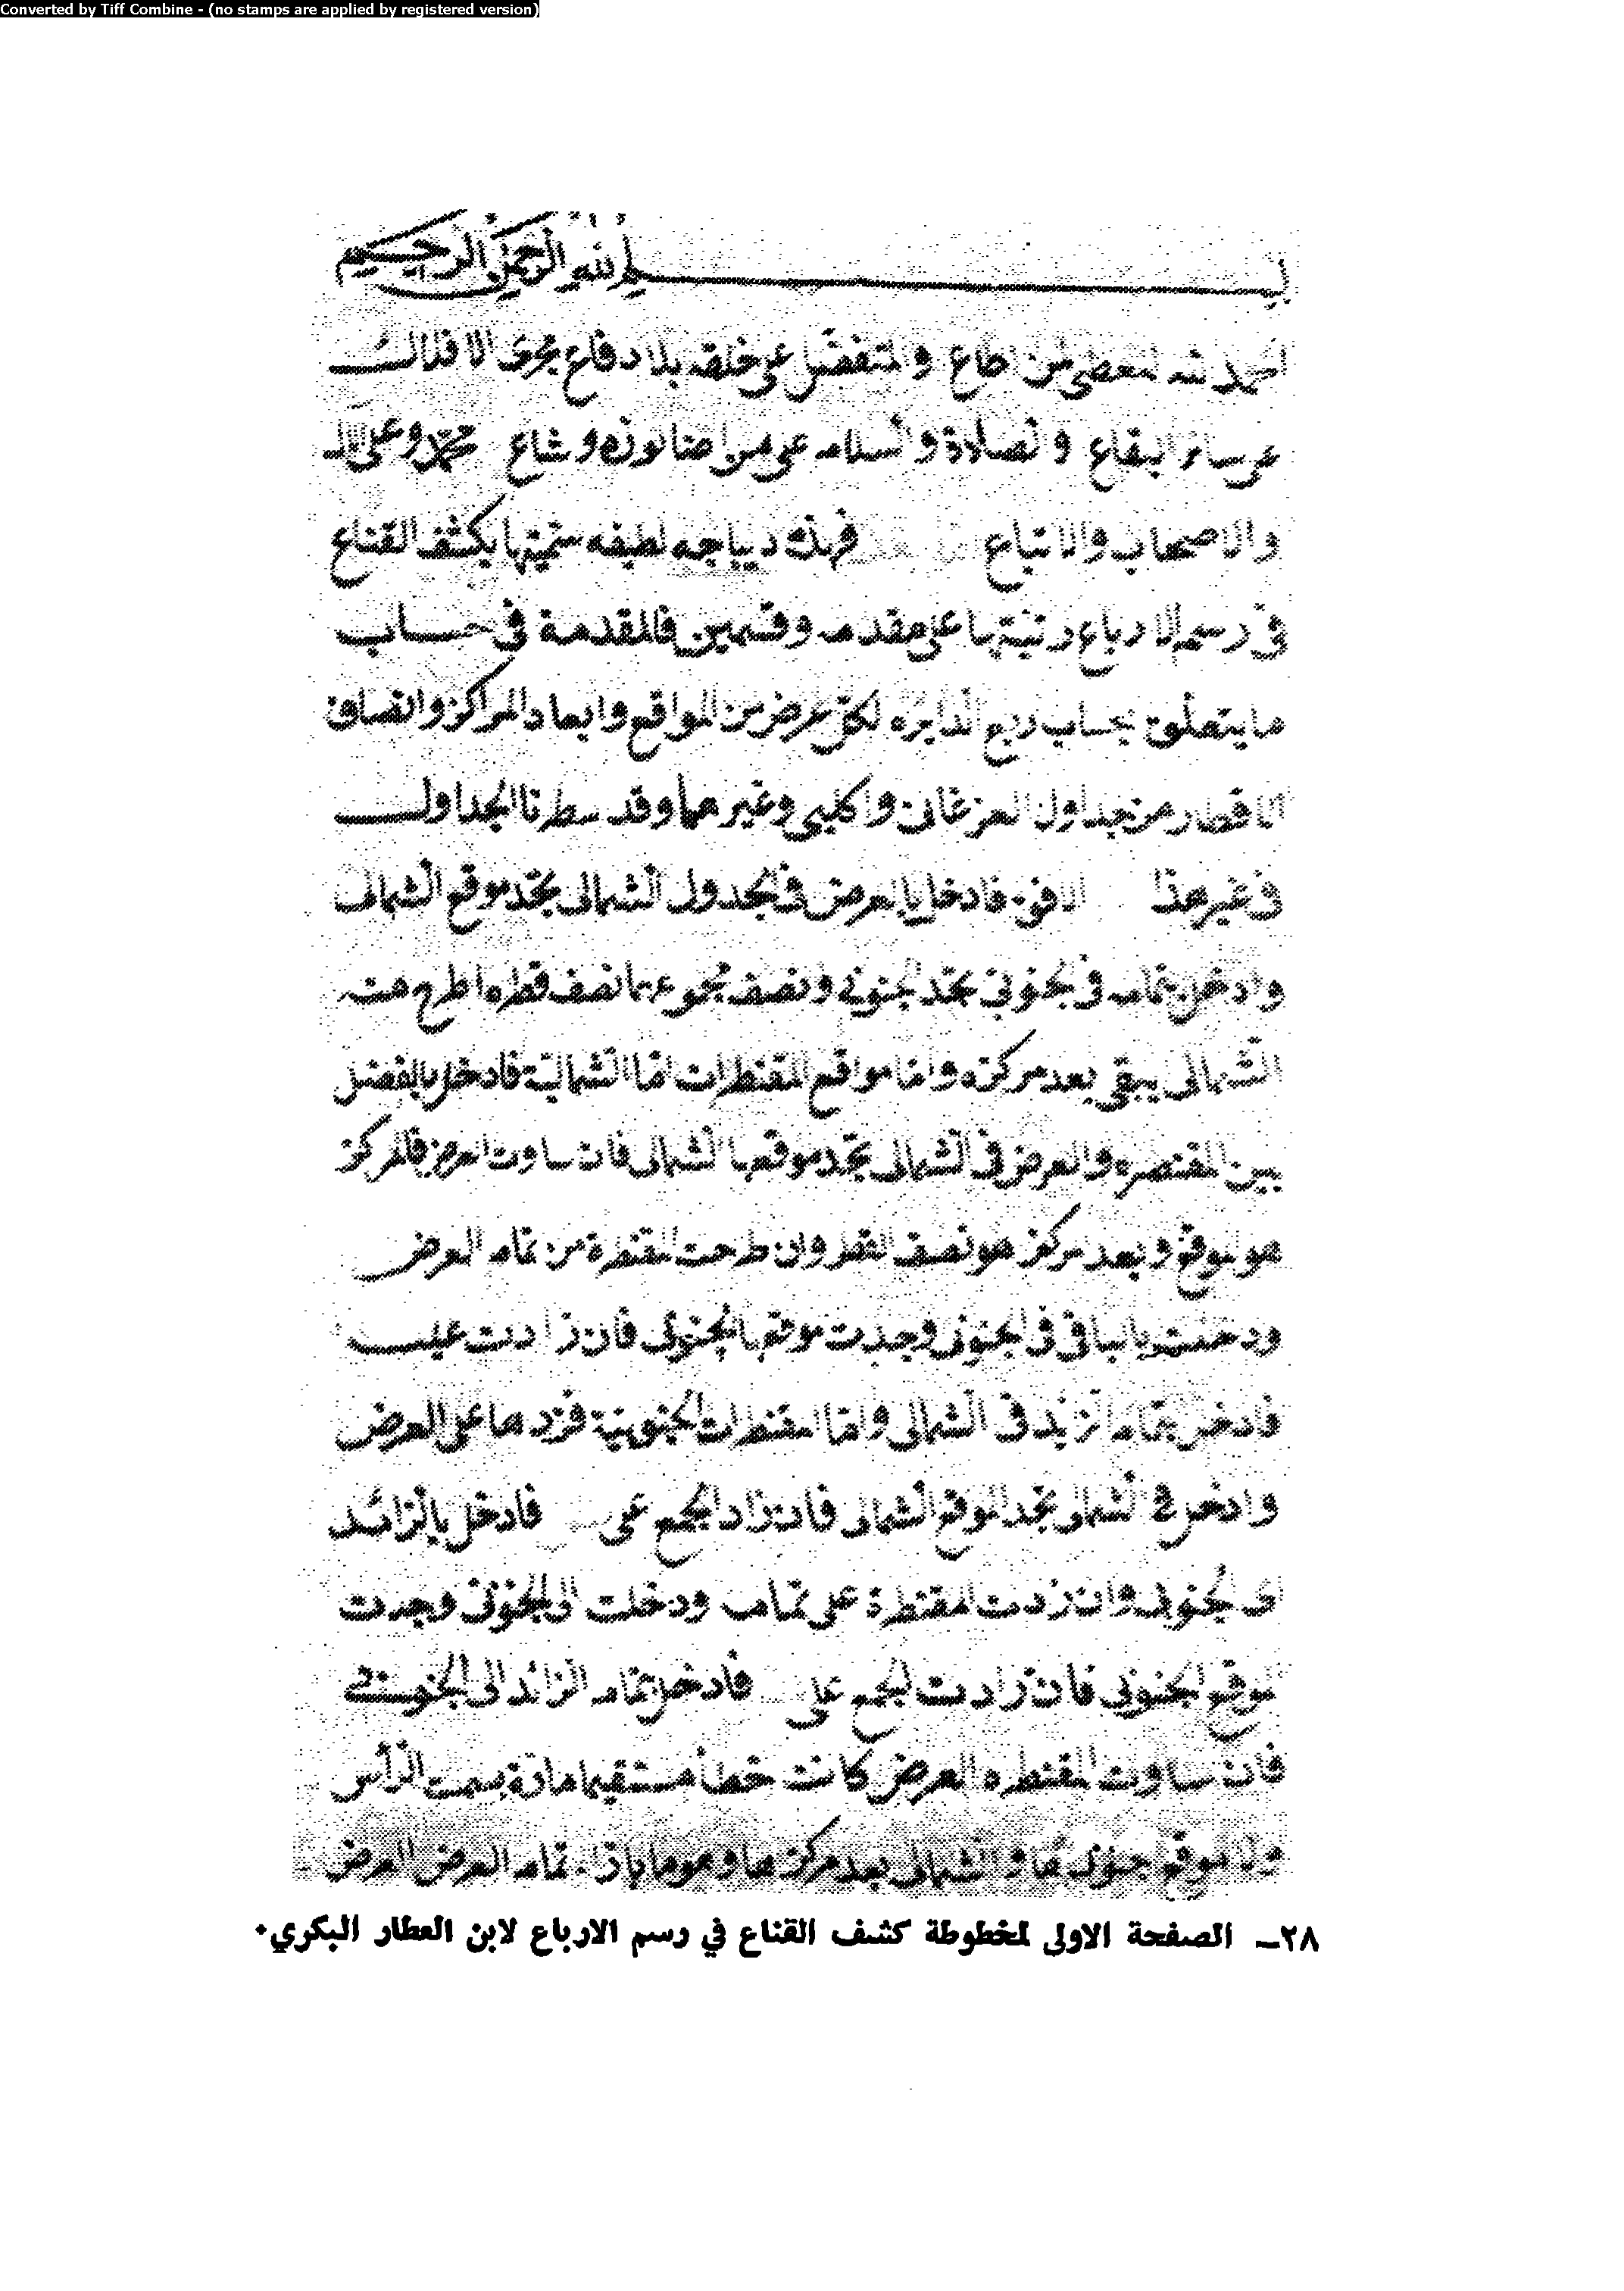 Converted by Tiff Combine - (no stamps are applied by registered version)
بسم الله الرحمن الرحيم
الحمد لله المعطى من اطاع والمتفضل على خلقه بلا دفاع مجرى الافلاك
على البقاع والصلاة والسلام على من نوره وشاع محمد وعلى اله
والاصحاب والاتباع فهذه ديباجه لطيفه سميتها بكشف القناع
فى رسم الارباع ورتبتها على مقدمه وقسمين فالمقدمة فى حساب
ما يتعلق بحساب ربع الدايره لكل عرض من المواقع وابعاد المراكز وانصاف
الاقطار من جداول الفرغانى وغيرهما وقد سطرنا الجداول
فى غير هذا فادخل بالعرض فى الجدول الشمالى تجد موقع الشمالى
وادخل بتمامه فى الجنوبى تجد الجنوبى ونصف مجموعهما نصف قطره اطرح منه
الشمالى يبقى بعد مركزه واما مواقع المقنطرات اما الشمالية فادخل بالفضل
بين المقنطره والعرض فى الشمالى تجد موقعها الشمالى فان ساوت العرض فالمركز
هو الموقع وبعد المركز هو نصف القطر وان طرحت المقنطرة من تمام العرض
ودخلت بالباقى فى الجنوبى وجدت موقعها الجنوبى فان زادت عليه
فادخل بتمام الزايد فى الشمالى واما المقنطرات الجنوبية فزدها على العرض
وادخل فى الشمالى تجد الموقع الشمالى فان زاد الجمع على فادخل بالزائد
الى الجنوبى وان زدت المقنطرة على تمامه ودخلت الى الجنوبى وجدت
الموقع الجنوبى فان زادت الجمع على فادخل بتمام الزائد الى الجنوبى
فان ساوت المقنطره العرض كانت خطا مستقيما مارة بسمت الرأس
والشمالى بعد مركزها وهو ما بازاء تمام العرض العرض
٢٨ـ الصفحة الاولى لمخطوطة كشف القناع في رسم الارباع لابن العطار البكري٠